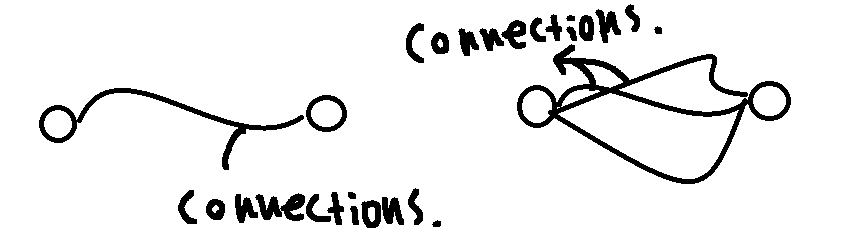 Connections.
Connections.